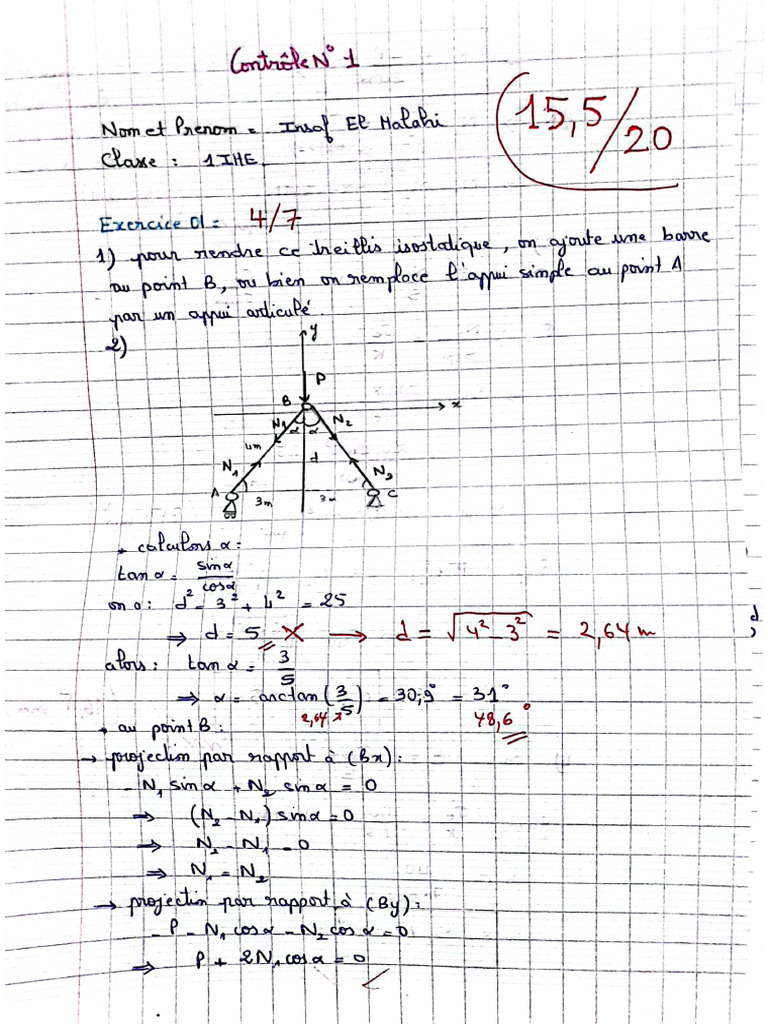 Contrôle N° 1
15,5/20
Nom et Prenom = Insaf El Malahi
Classe : 1IHE.
Exercice 01 = 4/7
1) pour rendre ce treillis isostatique, on ajoute une barre
au point B, ou bien on remplace l'appui simple au point A
par un appui articulé.
2)
y
P
B x
N1 α α N2
4m d
N1 N3
A 3m 3m C
• calculons α :
tan α = sinα/cosα
on a : d² = 3² + 4² = 25
⇒ d = 5 X → d = √(4² - 3²) = 2,64 m
alors : tan α = 3/5
⇒ α = arctan(3/5) = 30,9° = 31°
2,64 48,6°
• au point B :
→ projection par rapport à (Bx) :
- N1 sinα + N2 sinα = 0
⇒ (N2 - N1) sinα = 0
⇒ N2 - N1 = 0
⇒ N1 = N2
→ projection par rapport à (By) :
- P - N1 cosα - N2 cosα = 0
⇒ P + 2N1 cosα = 0